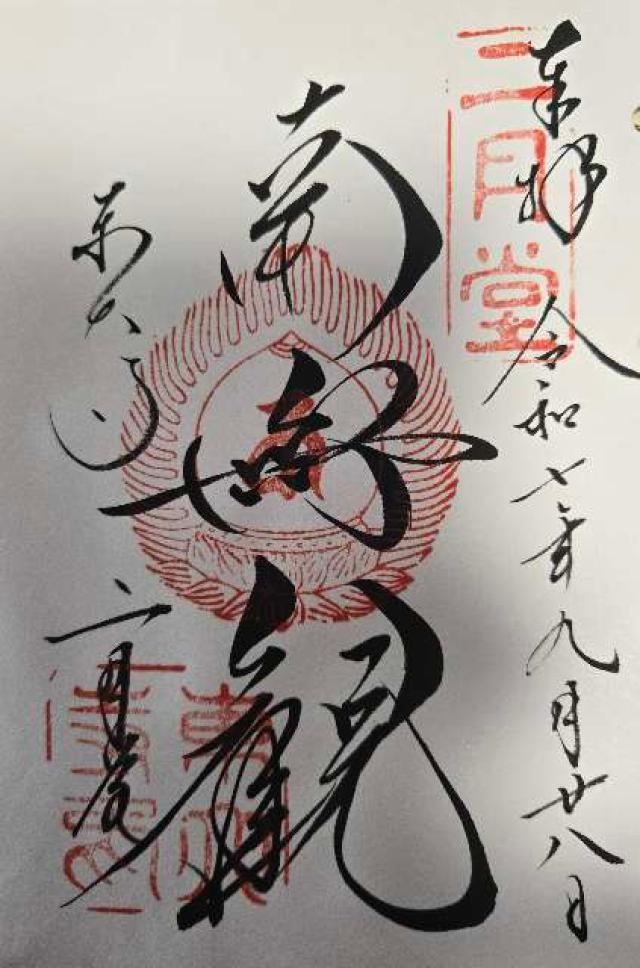 奉拝 令和七年九月廿八日
二月堂
南無観
東大寺
二月堂